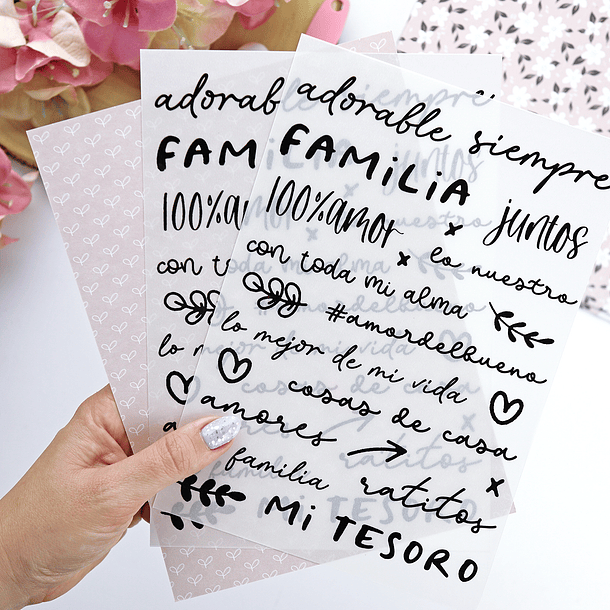 adorable siempre
FAMiLiA
100%amor x juntos
con toda mi alma x lo nuestro
#amordelbueno
lo mejor de mi vida
cosas de casa
amores
familia ratitos x
Mi TESORO
adorab
FAM
100%a
con t
lo m